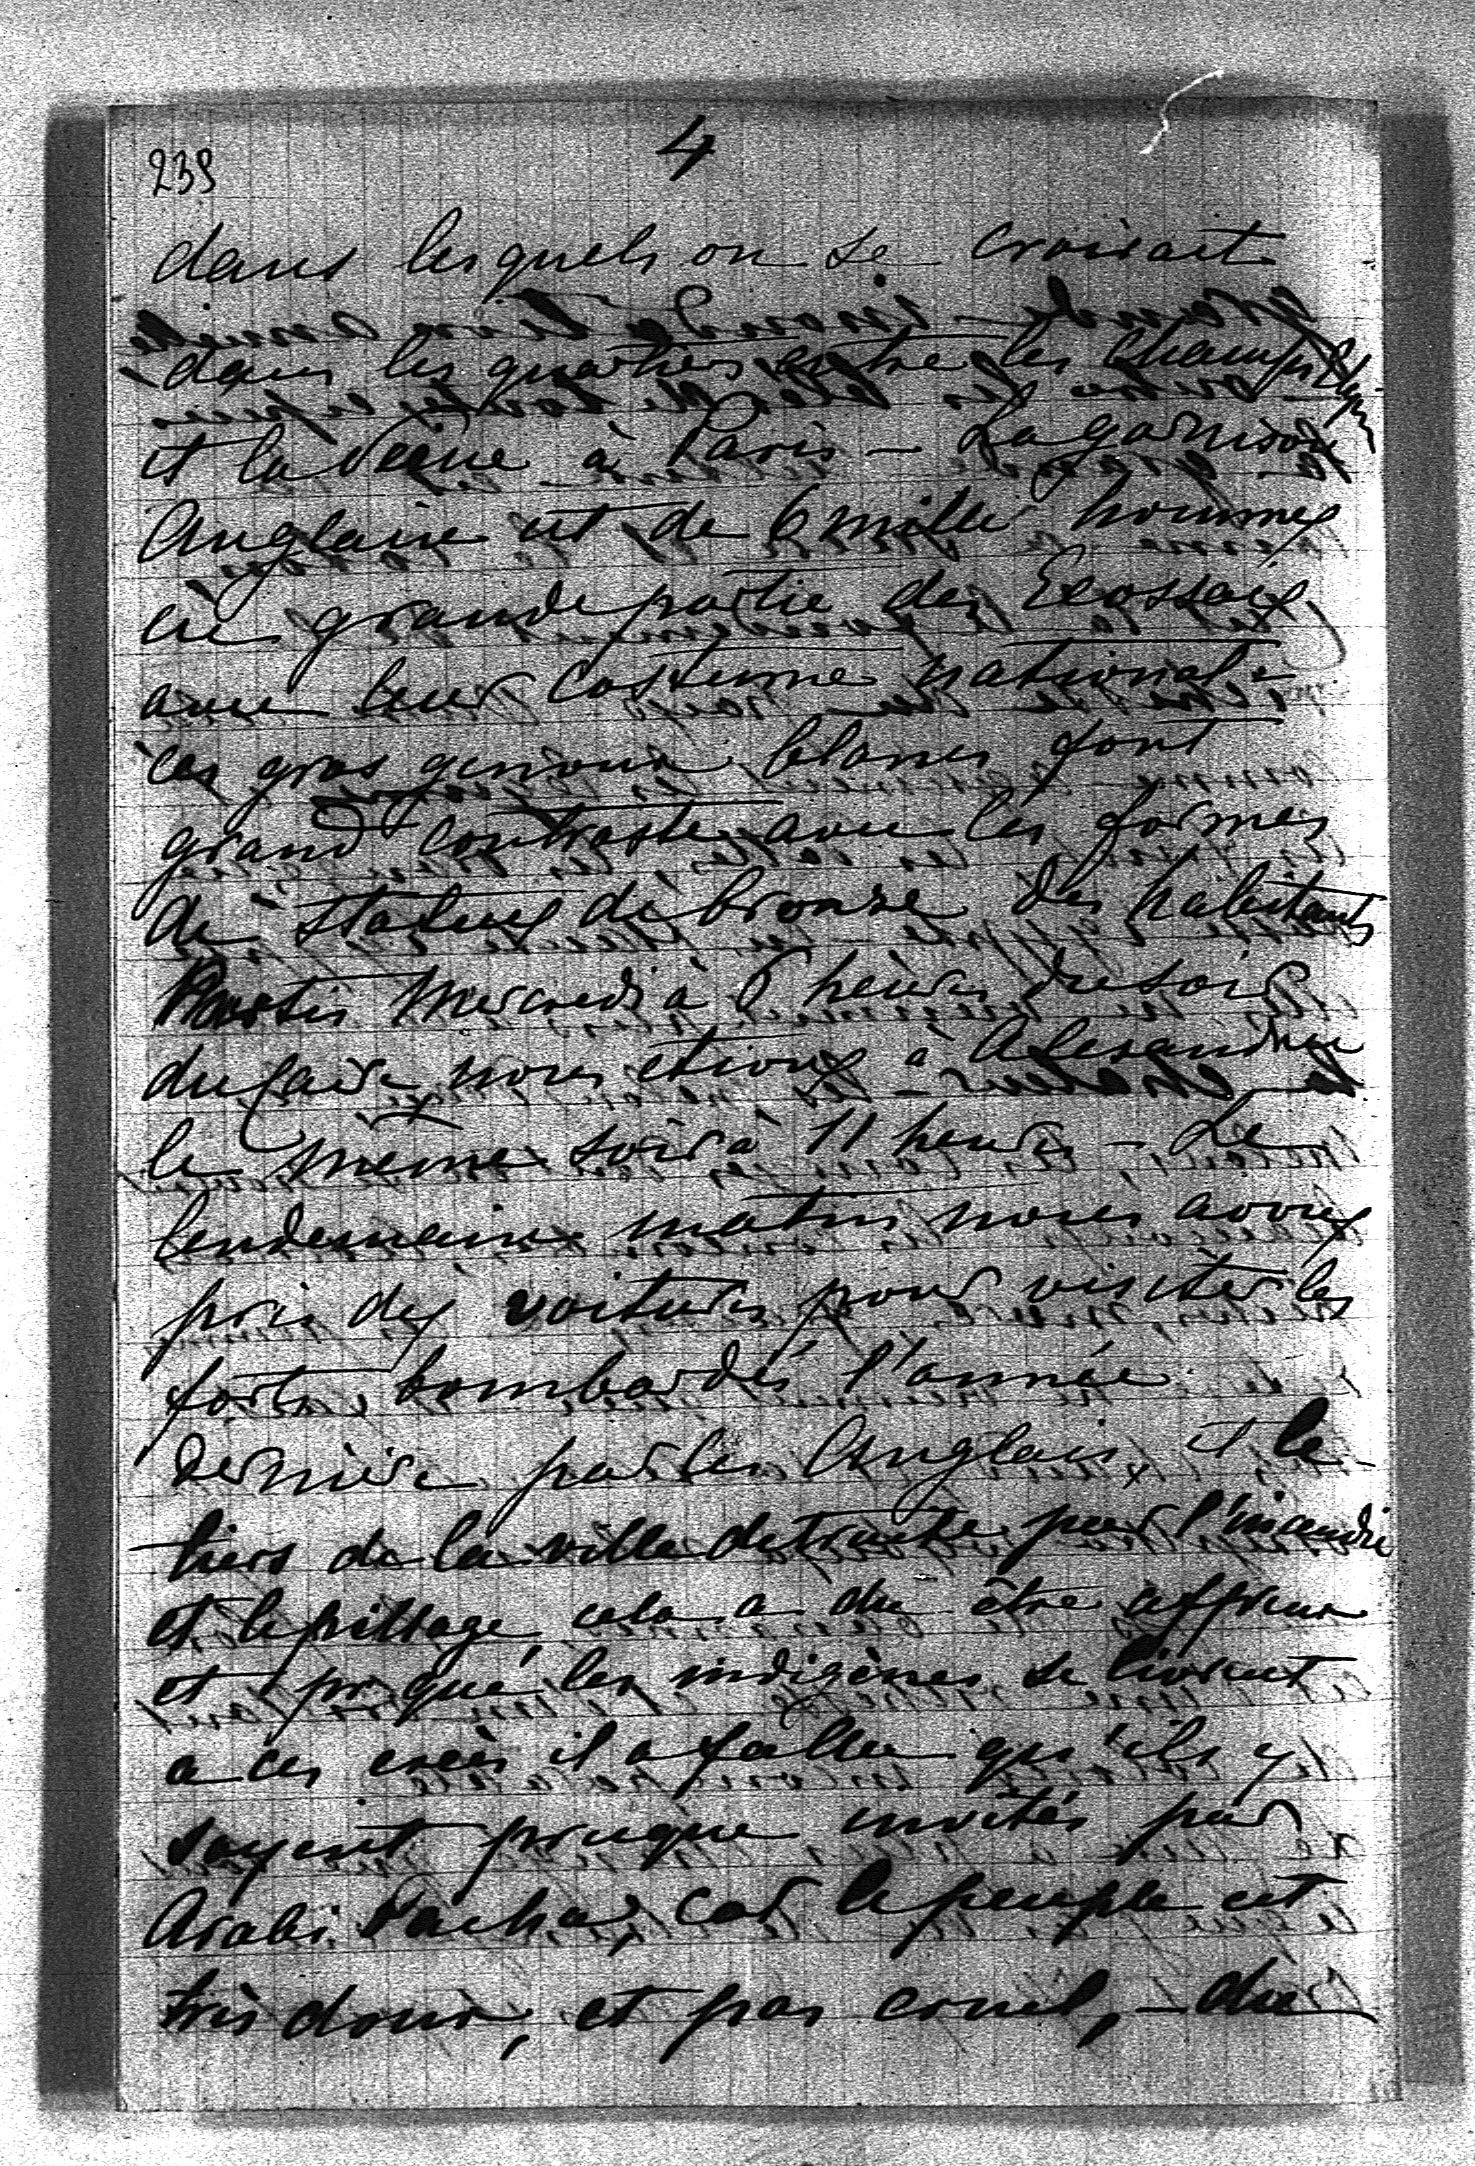 239
4
dans lesquels on se croirait
dans les quartiers entre les Champs Elys.
et la Seine à Paris — La garnison
Anglaise est de 6 mille hommes
en grande partie des Ecossais
avec leur costume national
ces gros genoux blancs font
grand contraste avec les formes
de statues de bronze des habitants
Partis Mercredi à 5 heures du soir
du Caire nous étions à Alexandrie
le même soir à 11 heures — Le
lendemain matin nous avons
pris des voitures pour visiter les
forts bombardés l'année
dernière par les Anglais, et le
tiers de la ville détruite par l'incendie
et le pillage, cela a du être affreux
et pr que les indigènes se livrent
a ces excès il a fallu qu'ils y
soyent presque invités par
Arabi Pacha, car le peuple est
très doux, et pas cruel, — du